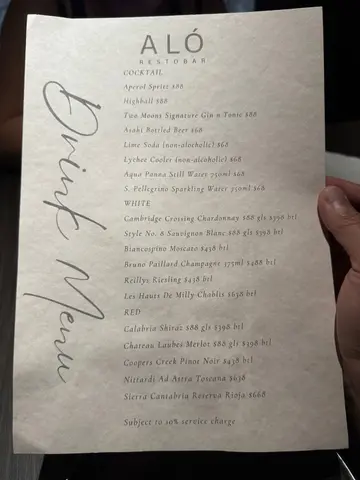 ALÓ
RESTOBAR
Drink Menu
COCKTAIL
Aperol Spritz $88
Highball $88
Two Moons Signature Gin n Tonic $88
Asahi Bottled Beer $68
Lime Soda (non-alocholic) $68
Lychee Cooler (non-alcoholic) $68
Aqua Panna Still Water 750ml $68
S. Pellegrino Sparkling Water 750ml $68
WHITE
Cambridge Crossing Chardonnay $88 gls $398 btl
Style No. 8 Sauvignon Blanc $88 gls $398 btl
Biancospino Moscato $438 btl
Bruno Paillard Champagne 375ml $488 btl
Reillys Riesling $438 btl
Les Hauts De Milly Chablis $638 btl
RED
Calabria Shiraz $88 gls $398 btl
Chateau Laubes Merlot $88 gls $398 btl
Coopers Creek Pinot Noir $438 btl
Nittardi Ad Astra Toscana $638
Sierra Cantabria Reserva Rioja $668
Subject to 10% service charge